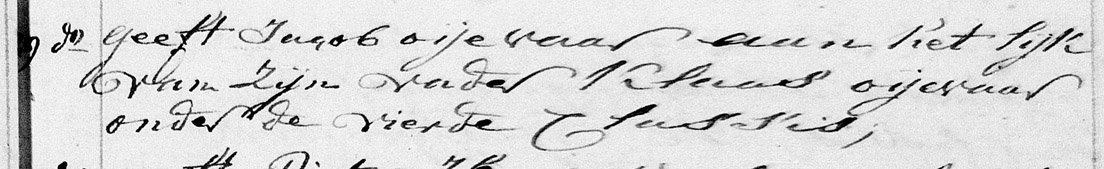 do geeft Jacob oijevaar aan het lijk
van zijn vader Klaas oijevaar
onder de vierde Classis,